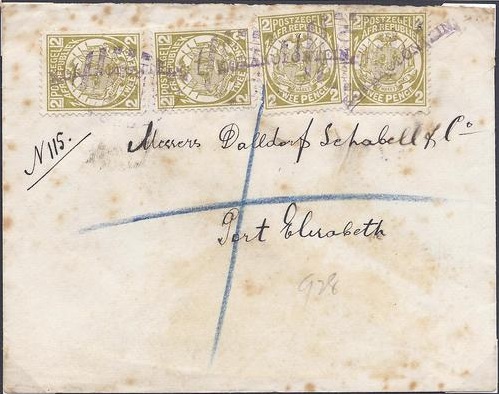 POSTZEGEL
AFR. REPUBLIEK
2 TWEE PENCE 2
POSTZEGEL
AFR. REPUBLIEK
2 TWEE PENCE 2
POSTZEGEL
AFR. REPUBLIEK
2 TWEE PENCE 2
POSTZEGEL
AFR. REPUBLIEK
2 TWEE PENCE 2
N 115.
Messrs Dalldorf Schabell & Co
Port Elizabeth
928